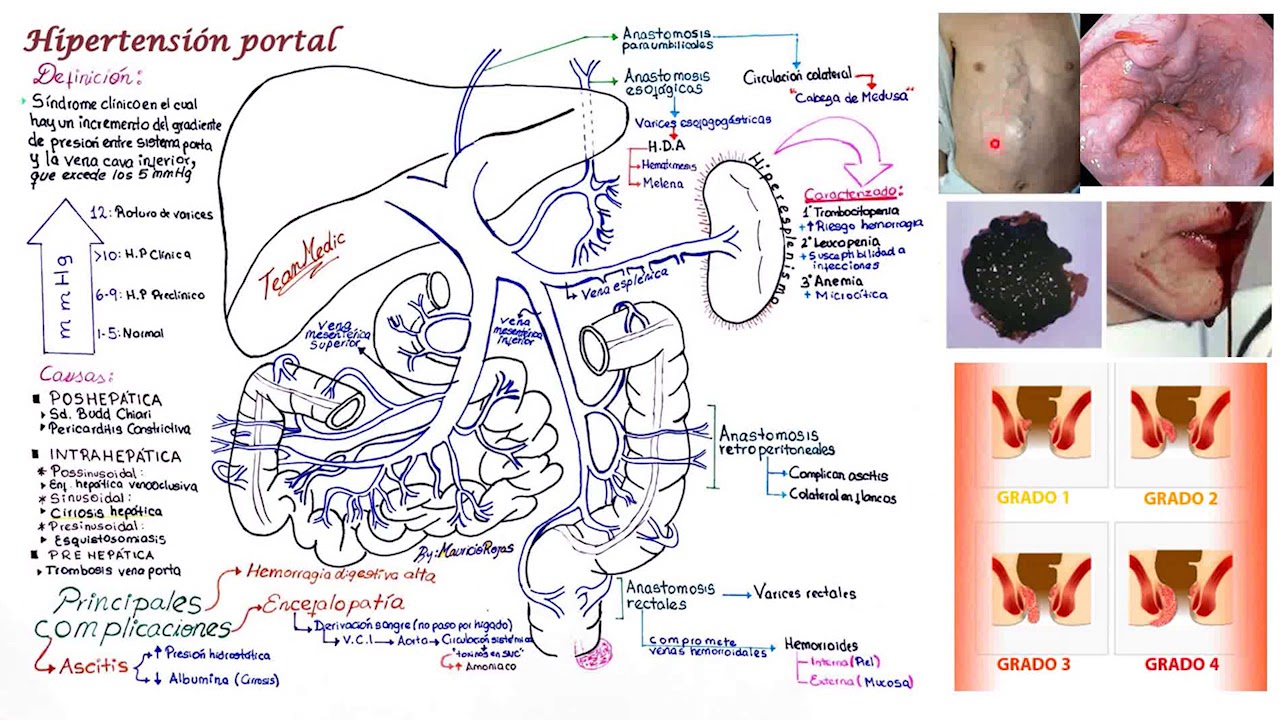 Hipertensión portal
Definición:
Síndrome clinico en el cual
hay un incremento del gradiente
de presion entre sistema porta
y la vena cava inferior,
que excede los 5 mmHg
mmHg
12: Rotura de varices
>10: H.P Clínica
6-9: H.P Preclínico
1-5: Normal
Causas:
POSHEPÁTICA
Sd. Budd Chiari
Pericarditis Constrictiva
INTRAHEPÁTICA
* Possinusoidal:
Enf. hepática venooclusiva
* Sinusoidal:
Cirrosis hepática
* Presinusoidal:
Esquistosomiasis
PRE HEPÁTICA
Trombosis vena porta
Principales
complicaciones
Hemorragia digestiva alta
Encefalopatía
Derivación sangre (no paso por hígado)
V.C.I → Aorta → Circulación sistémica
"toxinas en SNC"
↑ Amoniaco
Ascitis
↑ Presión hidrostática
↓ Albumina (Cirrosis)
TeamMedic
vena
mesentérica
superior
vena
mesentérica
inferior
Vena esplénica
By: Mauricio Rojas
Anastomosis
paraumbilicales
Circulación colateral
"Cabeza de Medusa"
Anastomosis
esofágicas
Varices esofagogástricas
H.D.A
Hematemesis
Melena
Hiperesplenismo
Caracterizado:
1° Trombocitopenia
+↑ Riesgo hemorragia
2° Leucopenia
+ Susceptibilidad a
infecciones
3° Anemia
+ Microcítica
Anastomosis
retroperitoneales
Complican ascitis
Colateral en flancos
Anastomosis
rectales
Varices rectales
compromete
venas hemorroidales
Hemorroides
Interna (Piel)
Externa (Mucosa)
GRADO 1
GRADO 2
GRADO 3
GRADO 4